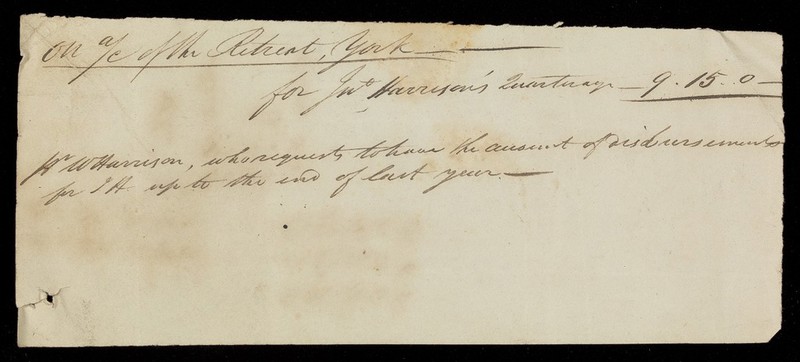 On a/c of the Retreat, York —
for Jnt Harrison's Quarterage — 9 . 15 . 0 —
pr W Harrison, who requests to have the amount of disbursements
for J H up to the end of last year. —